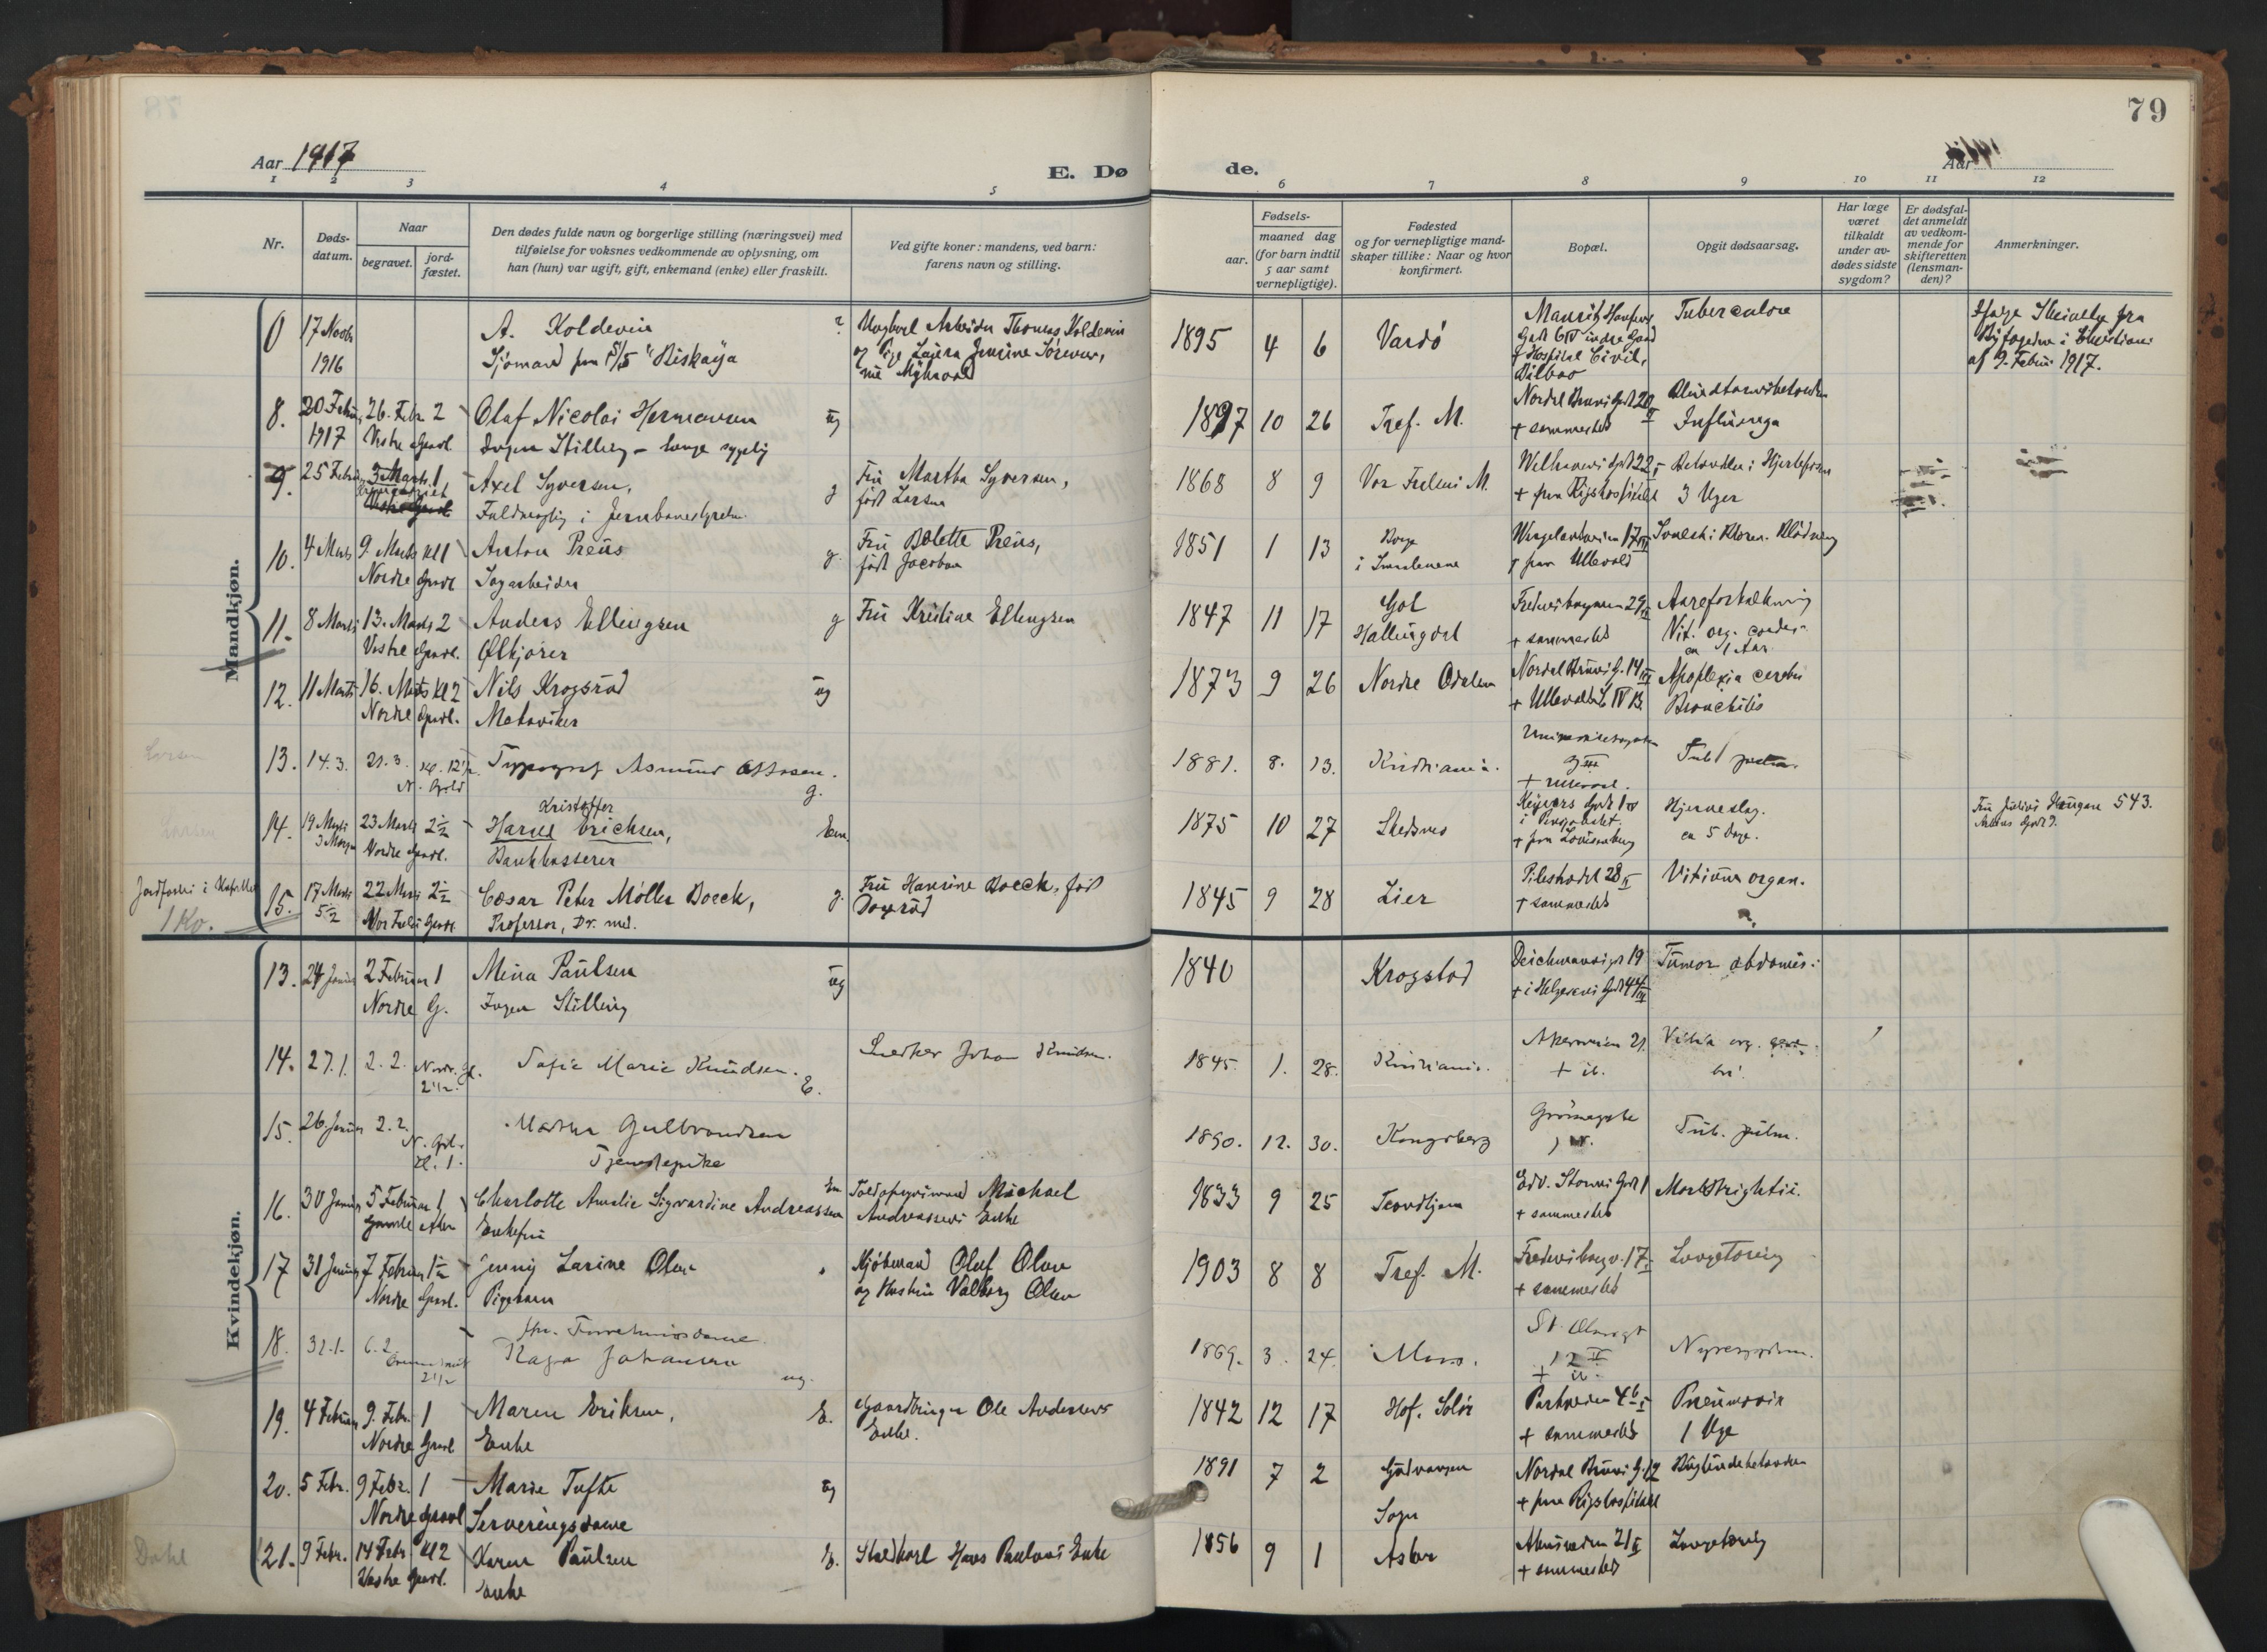 79
Aar 1917
E. Dø
de.
Aar
1 2 3 4 5 6 7 8 9 10 11 12
Nr.
Døds-
datum.
Naar
begravet.
jord-
fæstet.
Den dødes fulde navn og borgerlige stilling (næringsvei) med
tilføielse for voksnes vedkommende av oplysning, om
han (hun) var ugift, gift, enkemand (enke) eller fraskilt.
Ved gifte koner: mandens, ved barn:
farens navn og stilling.
Fødsels-
aar.
maaned dag
(for barn indtil
5 aar samt
vernepligtige).
Fødested
og for vernepligtige mand-
skaper tillike: Naar og hvor
konfirmert.
Bopæl.
Opgit dødsaarsag.
Har læge
været
tilkaldt
under av-
dødes sidste
sygdom?
Er dødsfal-
det anmeldt
av vedkom-
mende for
skifteretten
(lensman-
den)?
Anmerkninger.
Mandkjøn.
0 17 Novbr A. Koldevin ? Ungkarl Arbeider Thomas Koldevin 1895 4 6 Vardö Tuberculose
1916 Sjömand fra S/S "Riskøya
og Pige
Hospital Civil,
Bilbao
af 9. Febru 1917.
8. 20 Febru 26. Febr. 2 Olaf Nicolai Hermansen ug 1897 10 26 Tref. M. Nordal Bruns Gade 20
1917 Vestre Gravl. Ingen Stilling - længe sygelig + sammesteds Influenza
9. 25 Febru 3 Marts 1 Axel Syversen, g Fru Martha Syversen, 1868 8 9 Vor Frelsers M. Welhavens Gade 22
Krematoriet Fuldmægtig i Jernbanestyrelsen født Larsen + paa Rigshospitalet 3 Uger
10. 4 Marts 9. Marts Kl 1 Anton Preus g. Fru Bolette Preus, 1851 1 13 Borge
Nordre Gravl Sagarbeider født Jacobsen i Smaalenene + paa Ullevold
11. 8 Marts 13. Marts 2 Anders Ellingsen g Fru Kristine Ellingsen 1847 11 17 Gol Aareforkalkning
Vestre Gravl. Ølkjører Hallingdal + sammesteds Vit. org. cordis
ca 1 Aar.
12. 11 Marts 16. Marts Kl 2 Nils Krogsrud ug 1873 9 26 Nordre Odalen Nordal Bruns G. 14 Apoplexia cerebri
Nordre Gravl. + Ullevold Bronchitis
Larsen
13. 14.3. 21.3. kl. 12½. Typograf Asmund Ottosen. 1881. 8. 13. Kristiania. Universitetsgaten
N. Gvld g. 9 III
+ Ullevaal.
Larsen
14. 19 Marts 23 Marts 2½ Hans Kristoffer Erichsen, Em. 1875 10 27 Skedsmo Keysers Gade 1 Hjerneslag.
3 Morgen Nordre Gravl. Bankkasserer ca 5 Dage.
543.
Jordfæstes i Kapellet
1 Ko.
15. 17 Marts 22 Marts 2½ Cæsar Peter Møller Boeck, g. Fru Hansine Boeck, født 1845 9 28 Lier Pilestrædet 28 II Vitium organ.
5½ Vor Frels Gravl. Professor, Dr. med. + sammesteds
Kvindekjøn.
13. 24 Januar 2 Februar 1 Mina Paulsen ug 1840 Krogstad Deichmansgt 19 Tumor abdominis
Nordre G. Ingen Stilling + i Helgesens Gade 44
14. 27.1. 2.2. Nordr. Gl. Sofie Marie Knudsen. Snedker Johan Knudsen. 1845. 1. 28. Kristiania. Akersveien 21. Vitia org.
2½. E. + ib.
15. 26 Januar 2.2. Martha Gulbrandsen 1890. 12. 30. Kongsberg Tub. pulm.
N. Gvl. Tjenestepike
kl. 1.
16. 30 Januar 5 Februar 1 Charlotte Amalie Sigvardine Andreassen En Toldopsynsmand Michael 1833 9 25 Trondhjem Edv. Storms Gade 1 Morb. Brightii.
Gamle Aker Enkefru Andreassens Enke + sammesteds
17 31 Januar 7 Februar 1½ Jenny Larine Olsen Kjøbmand Oluf Olsen 1903 8 8 Tref. M. Fredensborgv. 17 Lungetæring
Nordre Gravl. Pigebarn og Hustru Valborg Olsen + sammesteds
18. 31.1. 6.2. fhv. Forretningsdame 1869. 3. 24. Moss. St. Olavsgt Nyresygdom.
2½ Ragna Johansen ug. 12 II
+ ib.
19. 4 Februar 9. Febr. 1 Maren Eriksen, E. Gaardbruger Ole Andersens 1842 12 17 Hof. Solør Parkveien Pneumonia
Nordre Gravl Enke Enke. + sammesteds 1 Uge
20. 5 Febr. 9 Febr. 1 Marie Tufte ug 1891 7 2 Gudvangen Nordal Bruns G. 12
Nordre Gravl Serveringsdame Sogn + paa Rigshospitalet
Dahl
21. 9 Febr. 14 Febr Kl 2 Karen Paulsen E. Staldkarl Hans Paulsens Enke 1856 9 1 Asker 21 II Lungetæring
Vestre Gravl. Enke + sammesteds